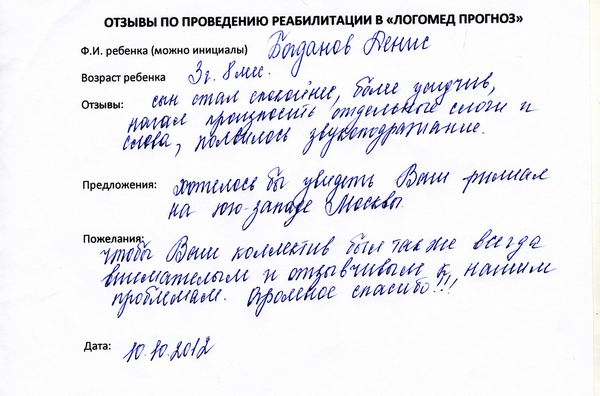 ОТЗЫВЫ ПО ПРОВЕДЕНИЮ РЕАБИЛИТАЦИИ В «ЛОГОМЕД ПРОГНОЗ»
Ф.И. ребенка (можно инициалы) Богданов Денис
Возраст ребенка 3г. 8 мес.
Отзывы: сын стал спокойнее, более усидчив,
начал произносить отдельные слоги и
слова, появилось звукоподражание.
Предложения: хотелось бы увидеть Ваш филиал
на юго-западе Москвы
Пожелания:
чтобы Ваш коллектив был также всегда
внимателым и отзывчивым к нашим
проблемам. Огромное спасибо!!!
Дата: 10.10.2012